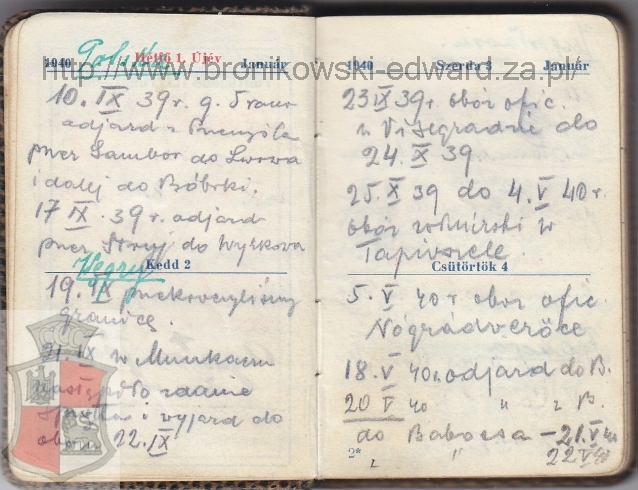 1940 Hétfő 1, Újév Január
Polska
http://www.bronikowski-edward.za.pl/
10. IX 39 r. g. 5 rano
odjazd z Przemyśla
przez Sambor do Lwowa
i dalej do Bóbrki.
17 IX. 39 r. odjazd
przez Stryj do Wyszkowa
Kedd 2
Węgry
19. IX przekroczyliśmy
granicę.
21. IX w Munkaczu
nastąpiło zdanie
i wyjazd do
obozu 22. IX
1940 Szerda 3 Január
23 IX 39 r. obóz ofic.
w Visegradzie do
24. X 39
25. X 39 do 4. V 40 r.
obóz żołnierski w
Tapioszele.
Csütörtök 4
5. V 40 r obóz ofic.
Nógrádverőce
18. V 40 r. odjazd do B.
20 V 40 " z B.
do Babocsa – 21. V 40
2* " 22 V 40